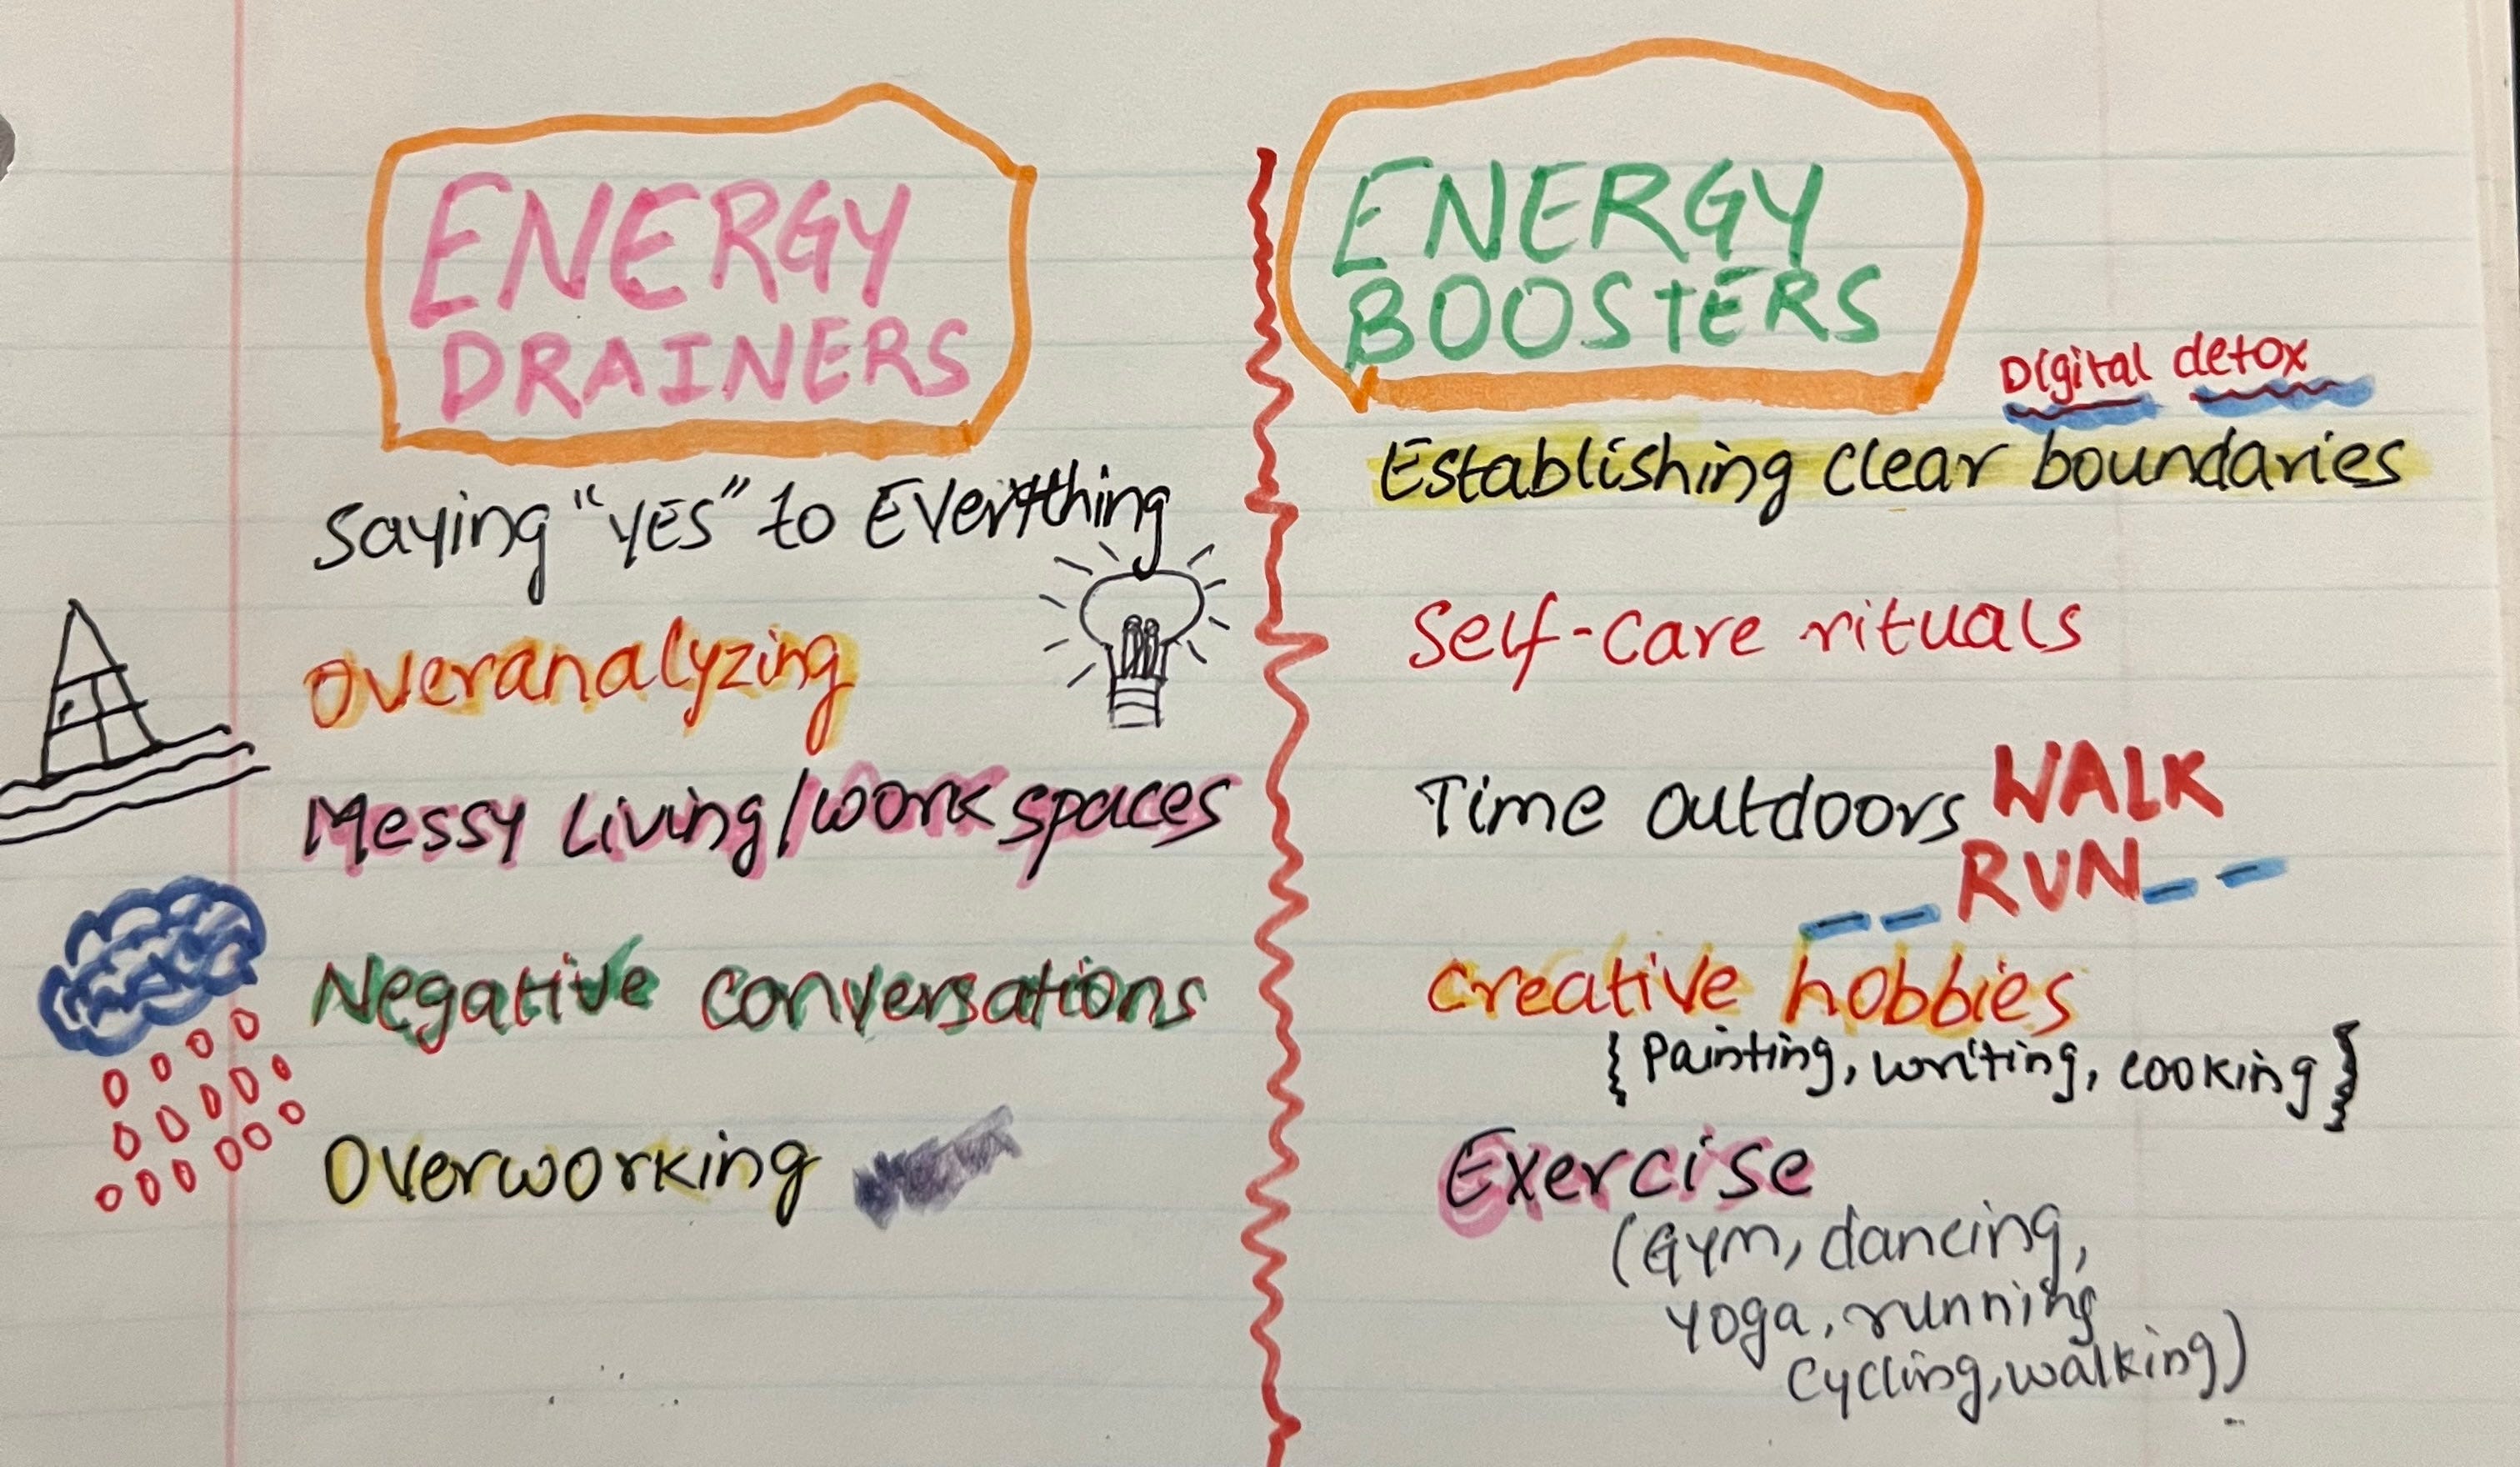 ENERGY
DRAINERS
Saying "YES" to Everything
Overanalyzing
Messy Living/work spaces
Negative conversations
Overworking
ENERGY
BOOSTERS
Digital detox
Establishing clear boundaries
Self-care rituals
Time outdoors WALK
RUN
Creative hobbies
{ Painting, writing, cooking }
Exercise
(Gym, dancing,
yoga, running
cycling, walking)